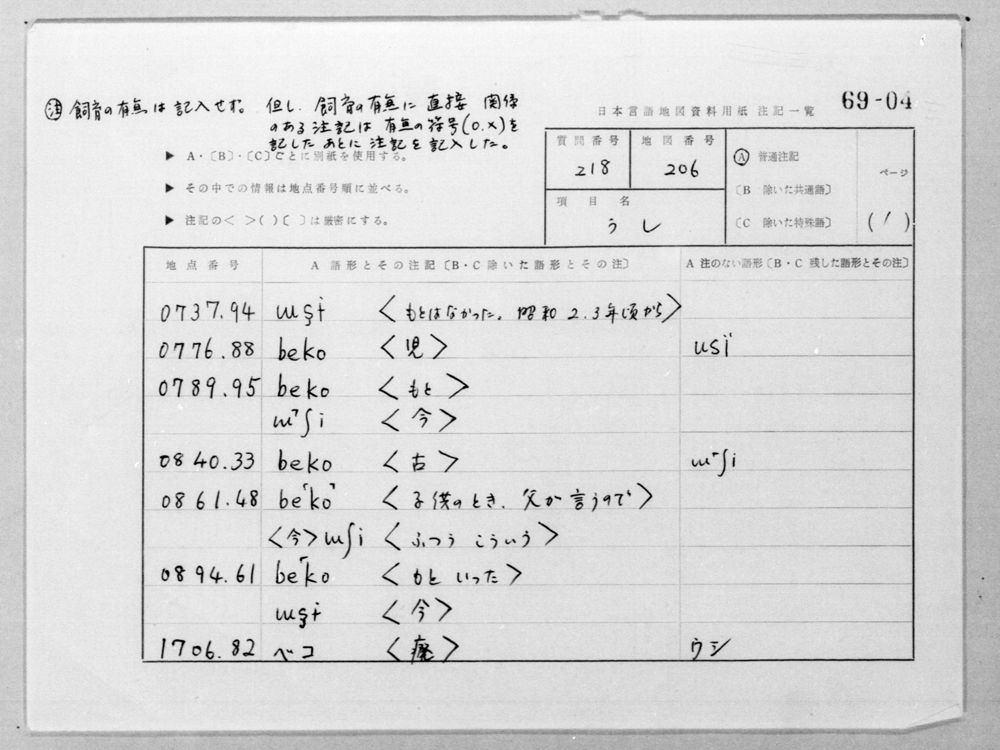 ㊟ 飼育の有無は記入せず。但し、飼育の有無に直接 関係
のある注記は有無の符号(O.X)を
記したあとに注記を記入した。
日本言語地図資料用紙 注記一覧 69-04
▶ A・〔B〕・〔C〕ごとに別紙を使用する。
▶ その中での情報は地点番号順に並べる。
▶ 注記の< >( )〔 〕は厳密にする。
質問番号 地図番号
218 206
項目名
うし
Ⓐ 普通注記
〔B 除いた共通語〕
〔C 除いた特殊語〕
ページ
(1)
地点番号 A 語形とその注記〔B・C 除いた語形とその注〕 A 注のない語形〔B・C 残した語形とその注〕
0737.94 ɯʂɨ <もとはなかった。昭和 2.3年頃から>
0776.88 beko <児> usï
0789.95 beko <もと>
ɯ˥ʃi <今>
0840.33 beko <古> ɯ˥ʃi
0861.48 be｢ko˥ <子供のとき、父が言うので>
<今>ɯʃi <ふつう こういう>
0894.61 be｢ko <もと いった>
ɯʂɨ <今>
1706.82 ベコ <廃> ウシ